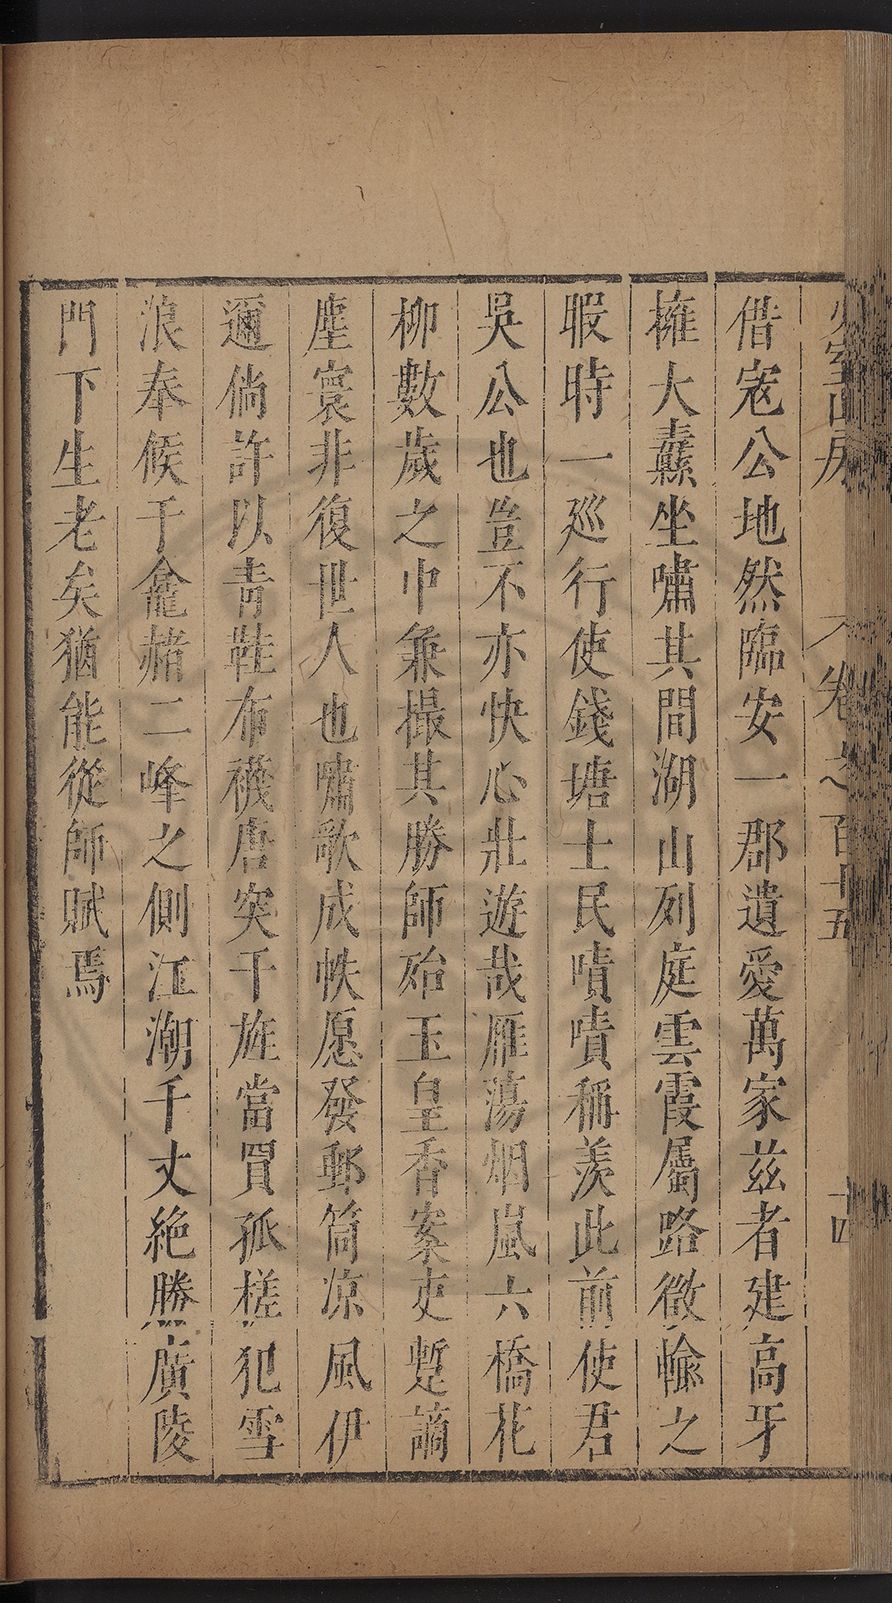 少室山房 卷之百十五 十四
借宼公地然臨安一郡遺愛萬家茲者建高牙
擁大纛坐嘯其間湖山列庭雲霞屬路徵輸之
暇時一廵行使錢塘士民嘖嘖稱羡此前使君
吳公也豈不亦快心壯遊哉雁蕩烟嵐六橋花
柳數歲之中兼撮其勝師殆玉皇香案吏蹔謫
塵寰非復世人也嘯歌成帙愿發郵筒凉風伊
邇倘許以青鞋布襪唐突干旌當買孤槎犯雪
浪奉候于龕赭二峰之側江潮千丈絶勝廣陵
門下生老矣猶能從師賦焉